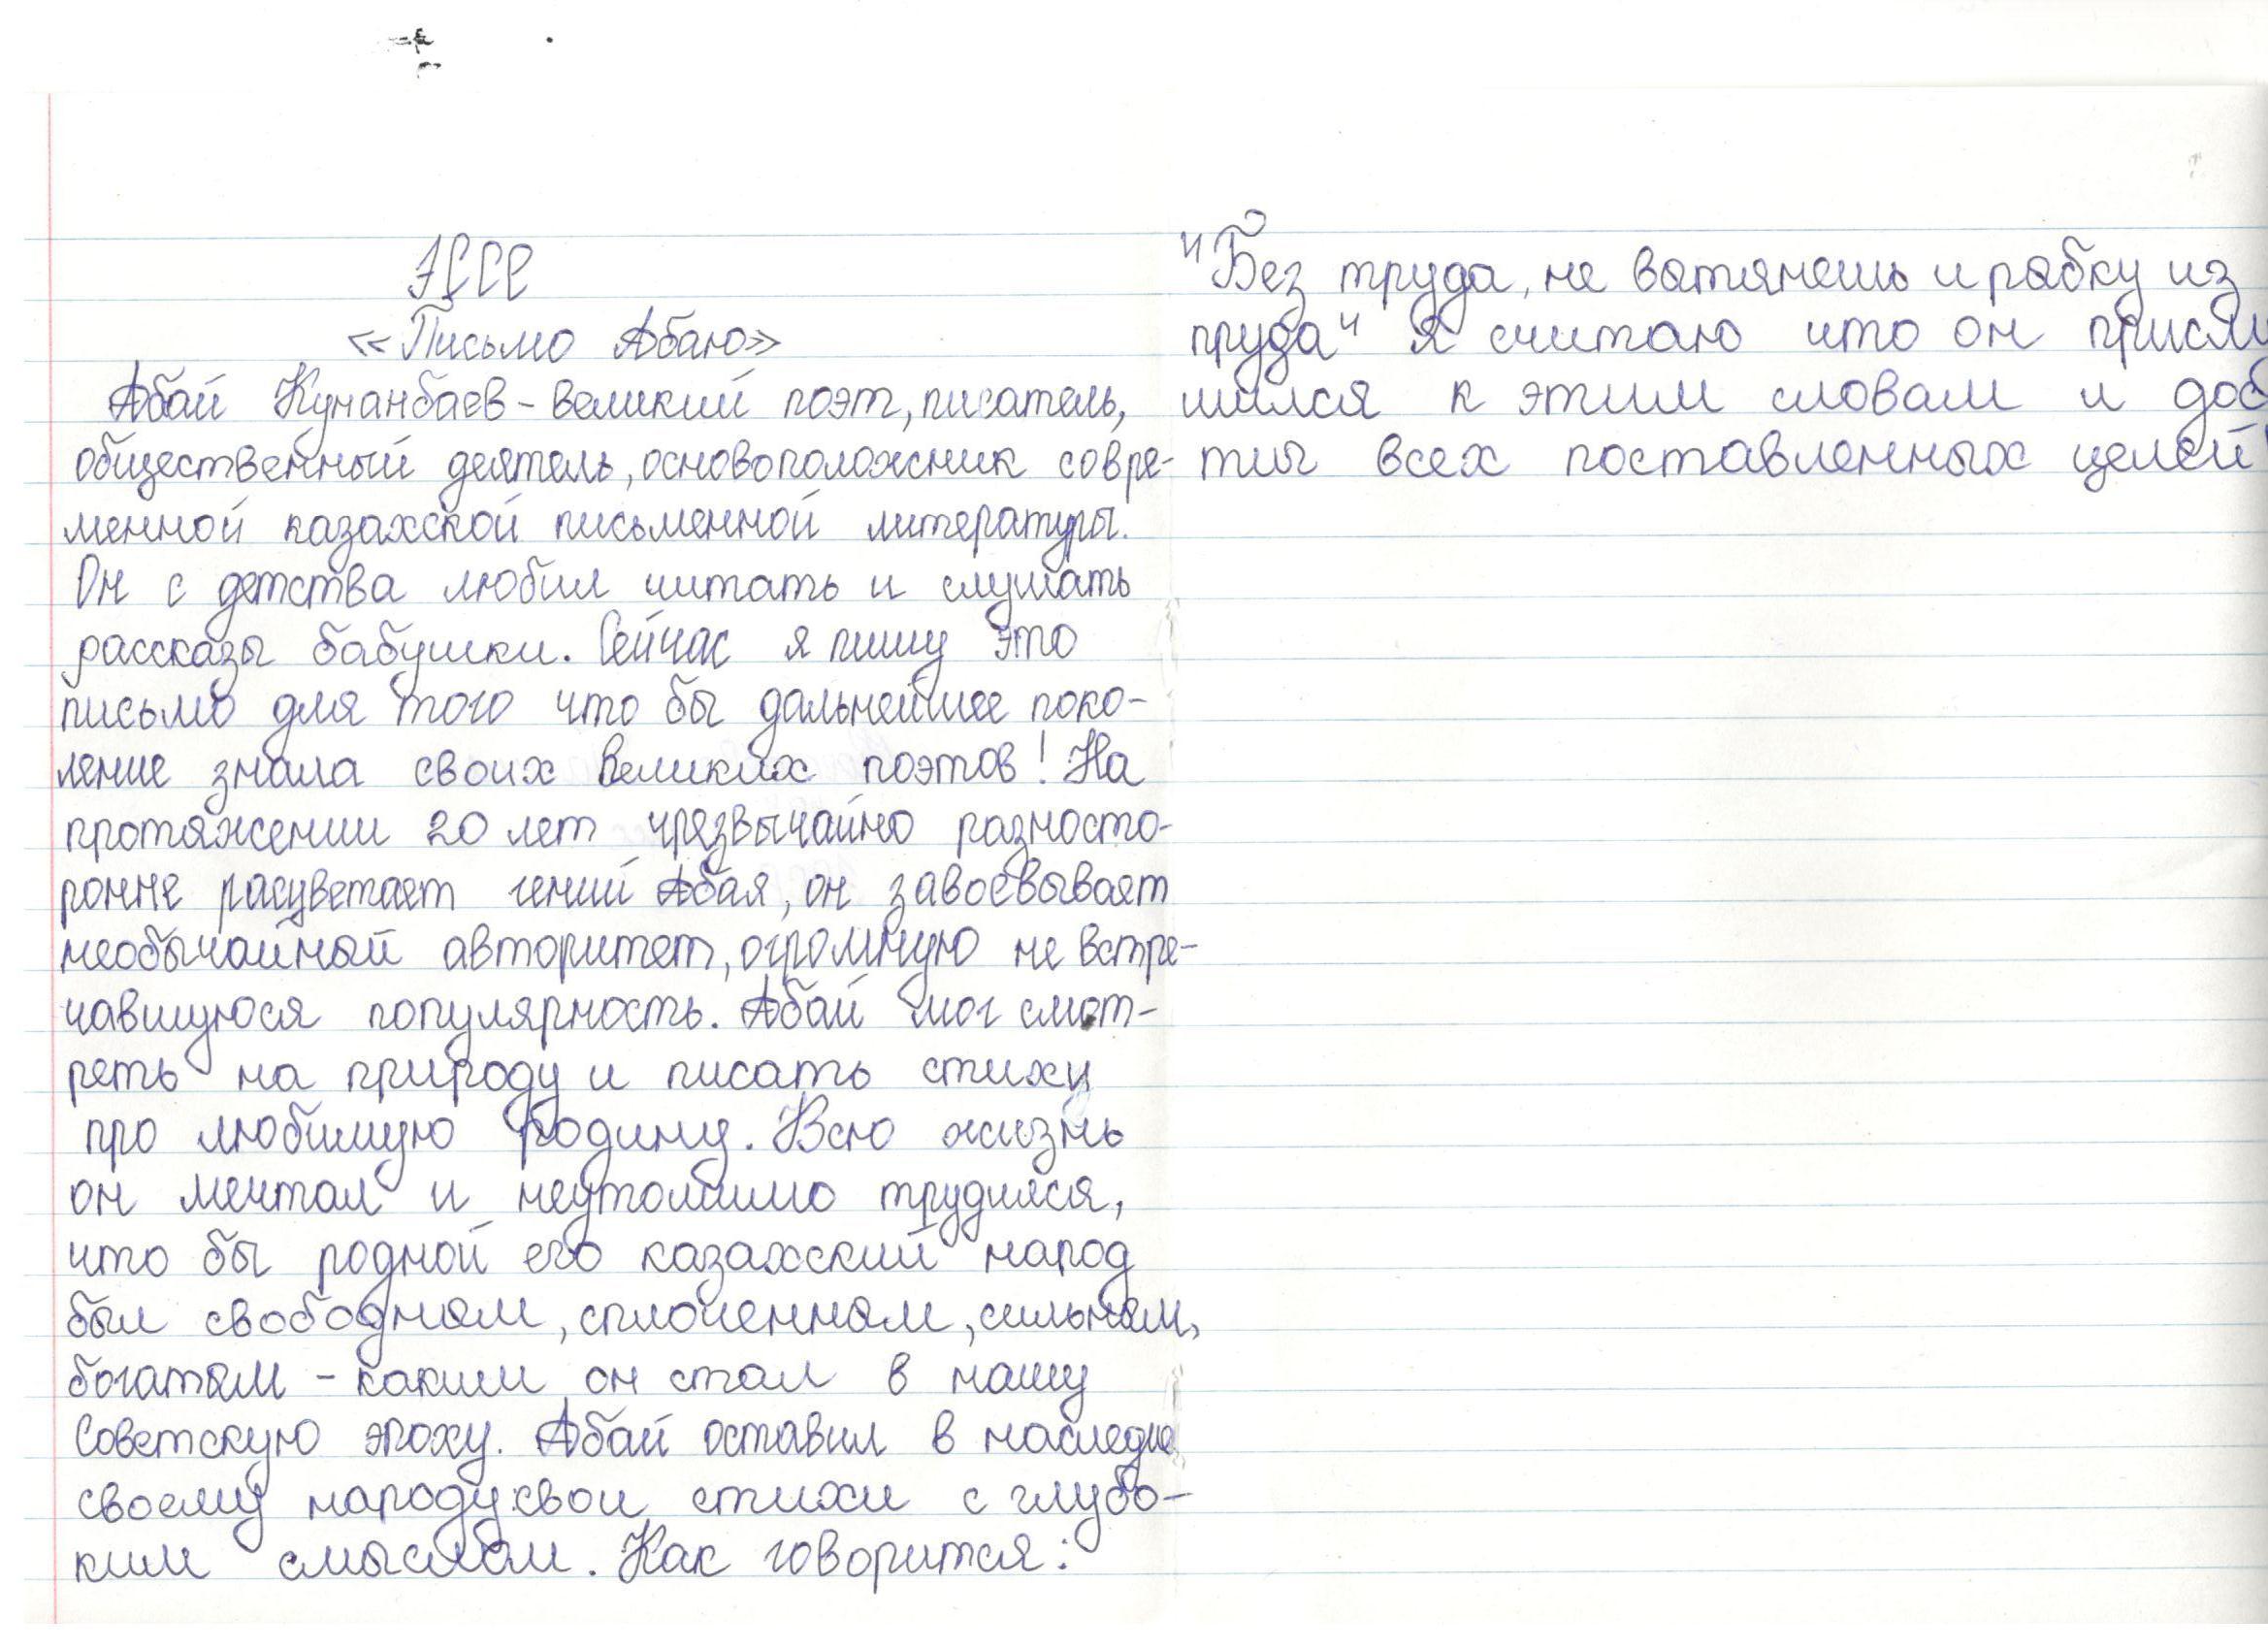 Эссе
«Письмо Абаю»
Абай Кунанбаев – великий поэт, писатель,
общественный деятель, основоположник совре-
менной казахской письменной литературы.
Он с детства любил читать и слушать
рассказы бабушки. Сейчас я пишу это
письмо для того что бы дальнейшее поко-
ление знала своих великих поэтов! На
протяжении 20 лет чрезвычайно разносто-
ронне расцветает гений Абая, он завоевывает
необычайный авторитет, огромную не встре-
чавшуюся популярность. Абай мог смот-
реть на природу и писать стихи
про любимую Родину. Всю жизнь
он мечтал и неутомимо трудился,
что бы родной его казахский народ
был свободным, сплоченным, сильным,
богатым – каким он стал в нашу
Советскую эпоху. Абай оставил в наследие
своему народу свои стихи с глубо-
ким смыслом. Как говорится:
"Без труда, не вытянешь и рыбку из
пруда" Я считаю что он присл
шился к этим словам и доб
тиг всех поставленных целей